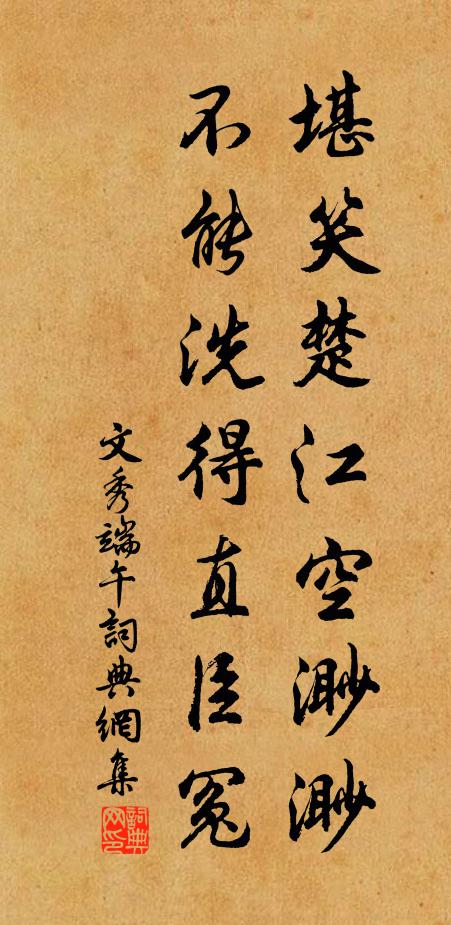 堪笑楚江空渺渺
不能洗得直臣冤
文秀端午詞典網集
詞典網印